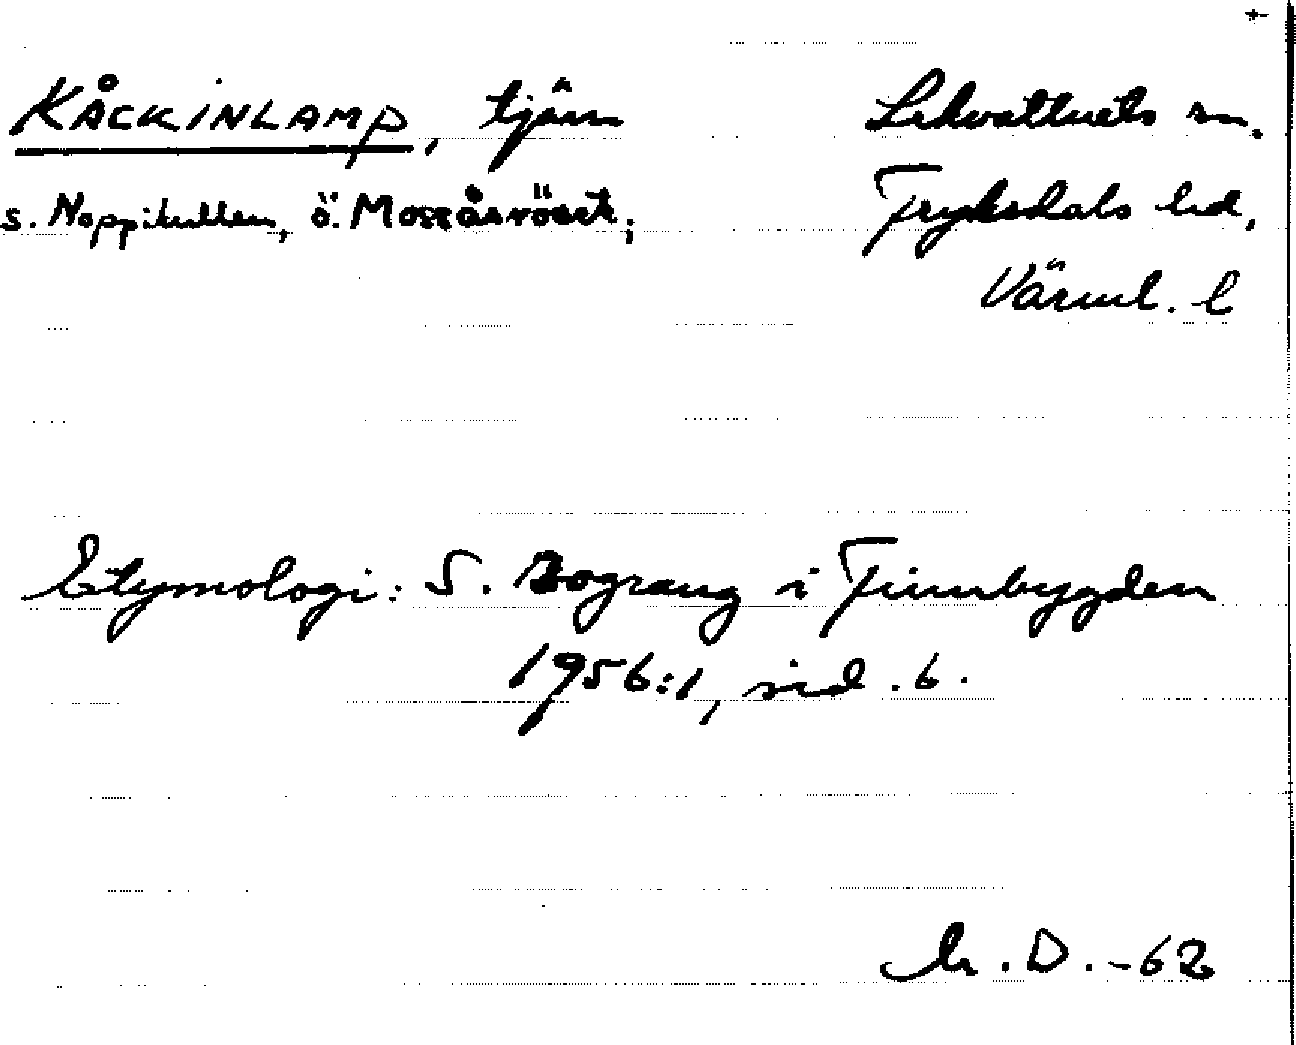 KÅCKINLAMP, tjärn
s. Noppikullen, ö. Mossåsröset;
Lekvattnets sn.
Fryksdals hd,
Värml. l
Etymologi: S. Bograng i Finnbygden
1956:1, sid. 6.
M. D. -62